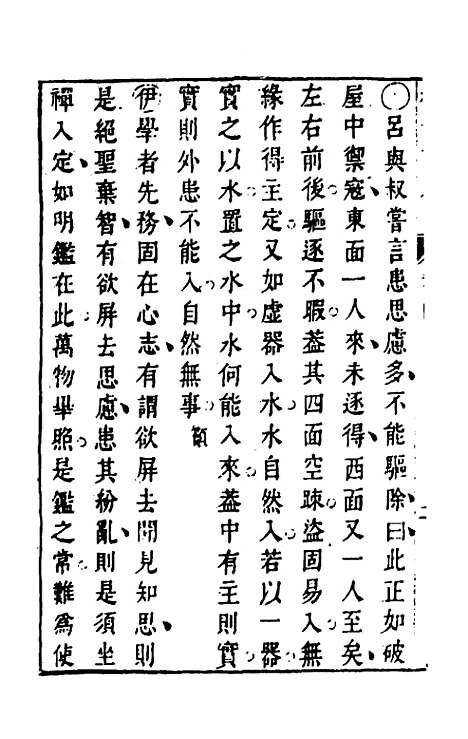 呂與叔嘗言患思慮多不能驅除曰此正如破
屋中禦寇東面一人來未逐得西面又一人至矣
左右前後驅逐不暇蓋其四面空疎盜固易入無
緣作得主定又如虛器入水水自然入若以一器
實之以水置之水中水何能入來蓋中有主則實
實則外患不能入自然無事
伊學者先務固在心志有謂欲屏去聞見知思則
是絕聖棄智有欲屏去思慮患其紛亂則是須坐
禪入定如明鑑在此萬物畢照是鑑之常難為使